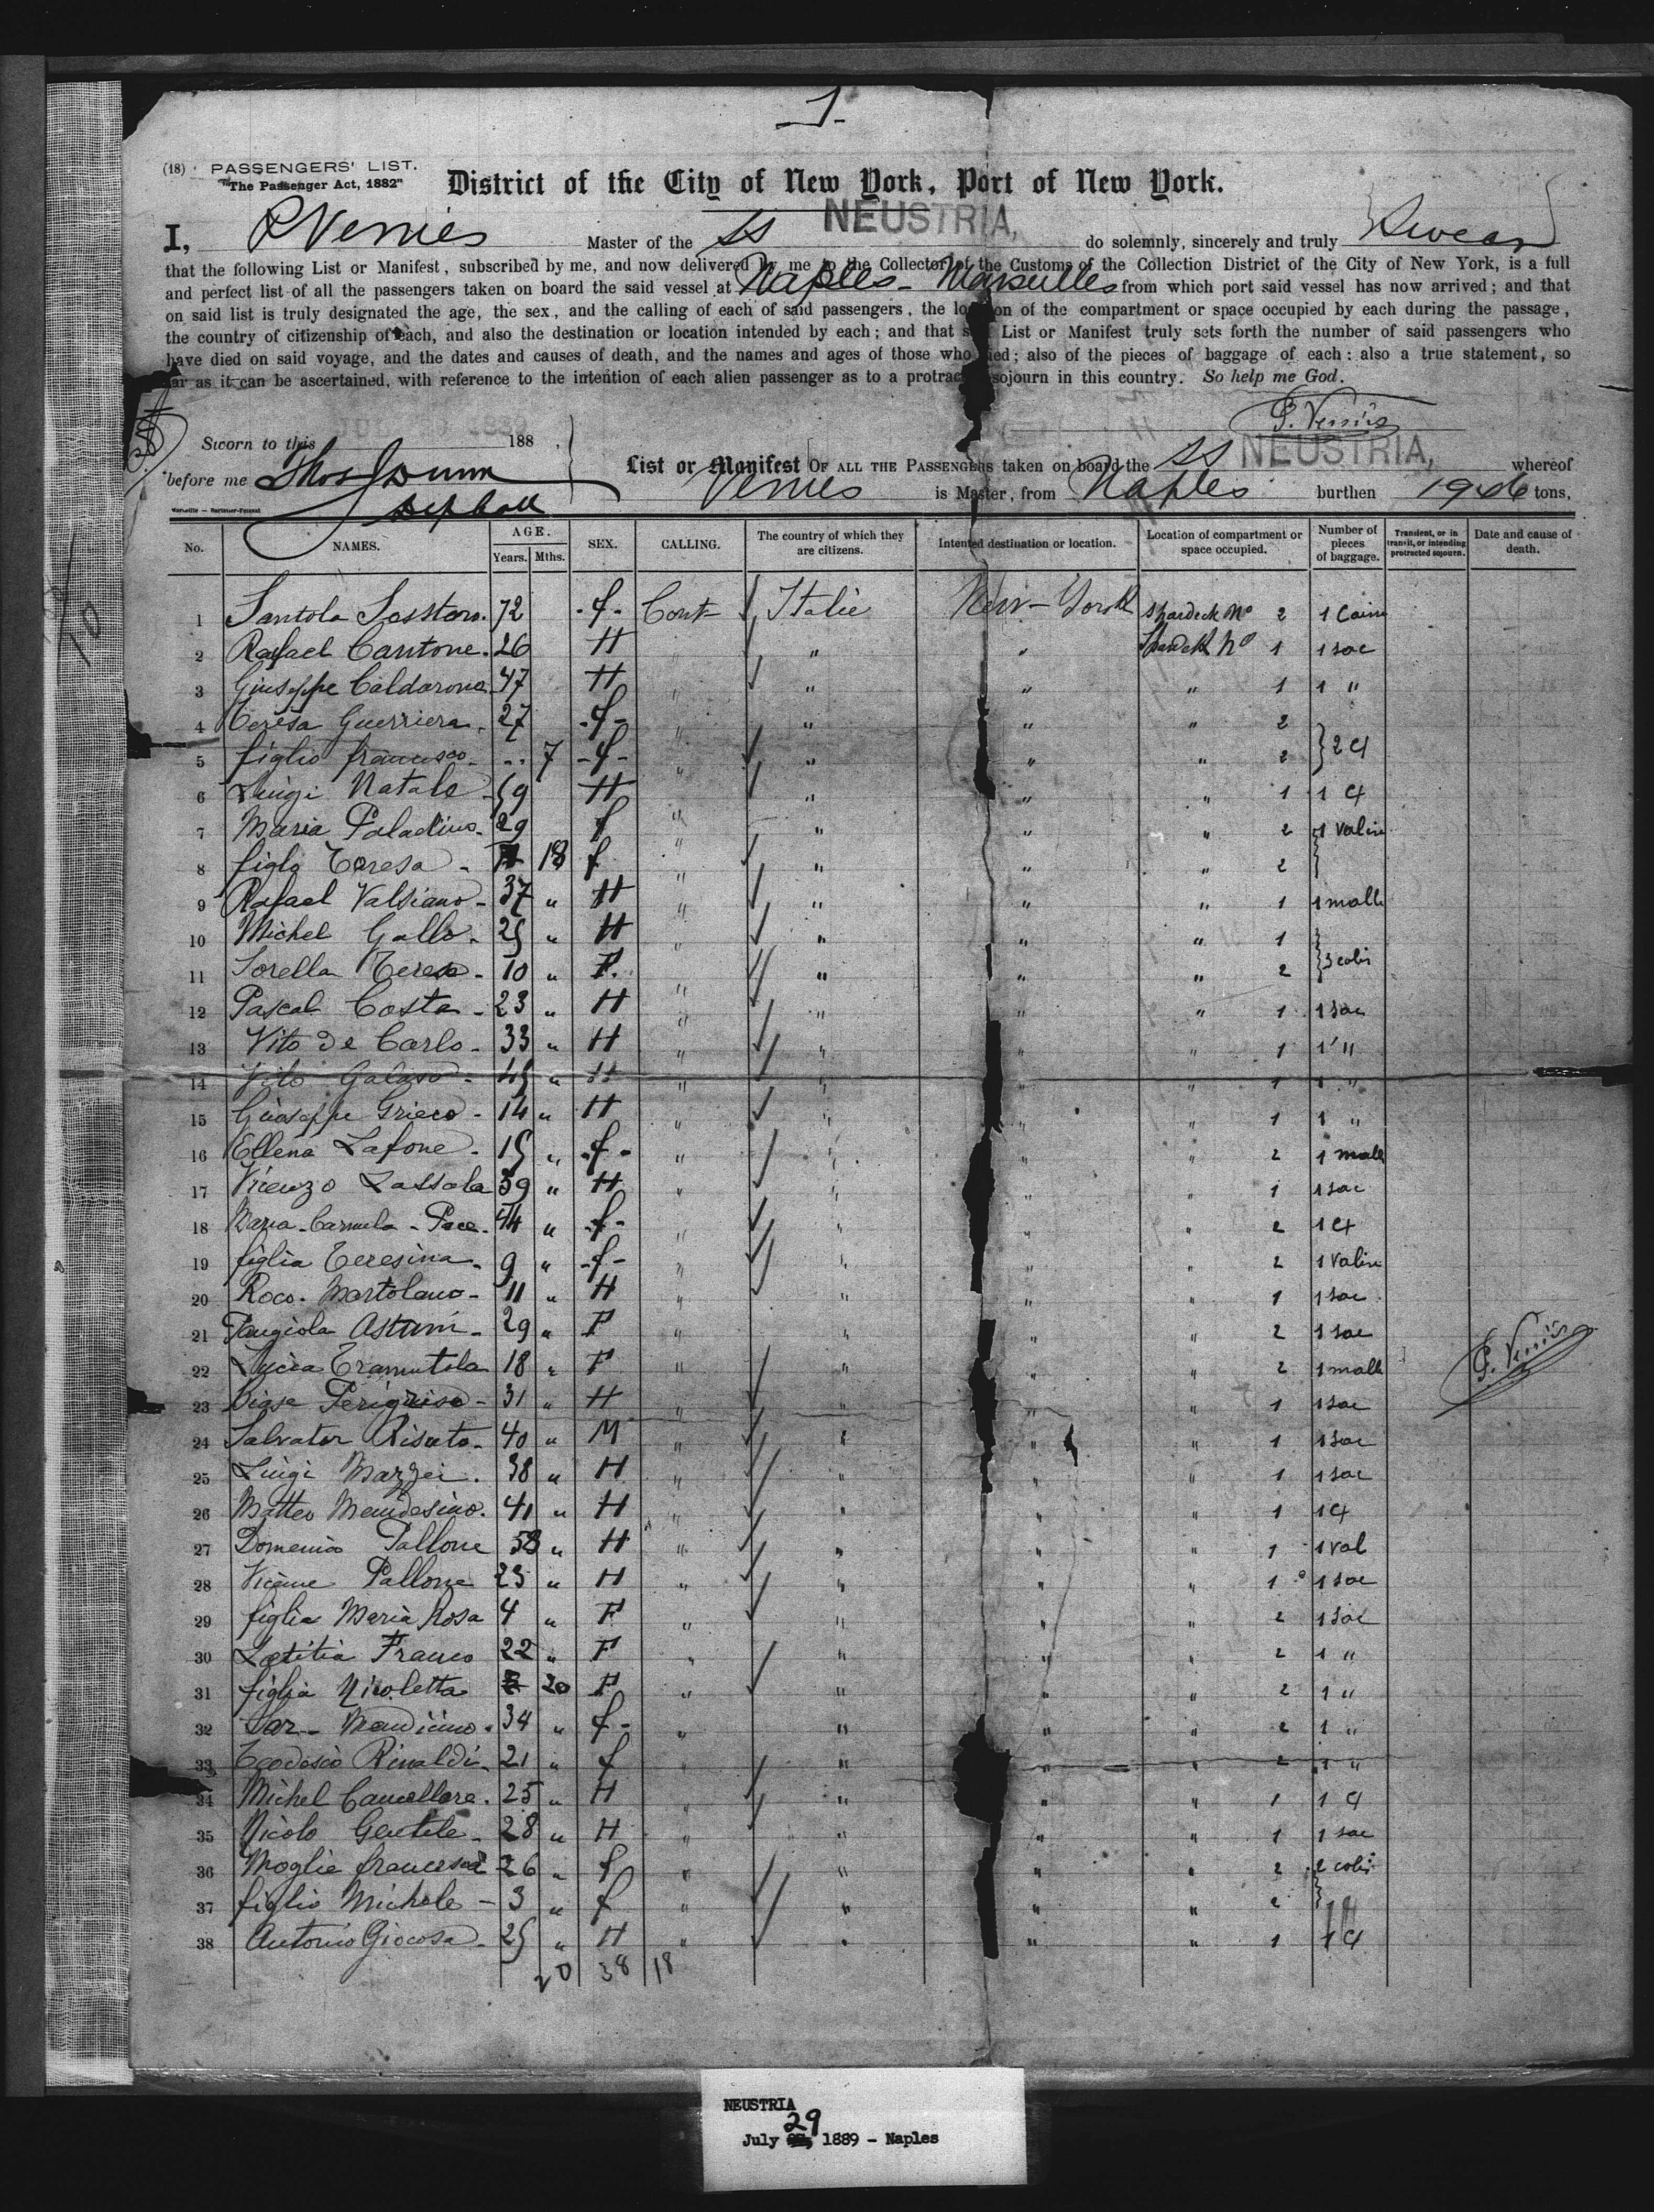 1-
(18) PASSENGERS' LIST.
"The Passenger Act, 1882"
District of the City of New York, Port of New York.
I, P Verries Master of the SS NEUSTRIA, do solemnly, sincerely and truly Swear
that the following List or Manifest, subscribed by me, and now delivered by me to the Collector of the Customs of the Collection District of the City of New York, is a full
and perfect list of all the passengers taken on board the said vessel at Naples - Marseilles from which port said vessel has now arrived; and that
on said list is truly designated the age, the sex, and the calling of each of said passengers, the lo on of the compartment or space occupied by each during the passage,
the country of citizenship of each, and also the destination or location intended by each; and that s List or Manifest truly sets forth the number of said passengers who
have died on said voyage, and the dates and causes of death, and the names and ages of those who died; also of the pieces of baggage of each: also a true statement, so
far as it can be ascertained, with reference to the intention of each alien passenger as to a protrac sojourn in this country. So help me God.
P. Verries
Sworn to this 188
before me Thos Dunn
Dep Coll
List or Manifest OF ALL THE PASSENGERS taken on board the SS NEUSTRIA, whereof
Verries is Master, from Naples burthen 1926 tons.
No. NAMES. AGE. Years. Mths. SEX. CALLING. The country of which they are citizens. Intented destination or location. Location of compartment or space occupied. Number of pieces of baggage. Transient, or in transit, or intending protracted sojourn. Date and cause of death.
1 Santola 72 f Cont Italie New-York Spardeck No 2 1
2 Rafael Cantone 26 H " " Spardeck No 1 1 sac
3 Giuseppe Caldarone 47 H " " " " 1 1 "
4 Teresa Guerriera 27 f " " " 2
5 figlio francesco 7 f " " " " 2 } 2 Cx
6 Luigi Natale 59 H " " " 1 1 Cx
7 Maria Paladino 29 f " " " 2 1 valise
8 figla Teresa 18 f " " " " 2
9 Rafael Valsiano 37 " H " " " " 1 1 malle
10 Michel Gallo 25 " H " " " " 1
11 Sorella Teresa 10 " F. " " " " 2 } 3 colis
12 Pascal Costa 23 " H " " " " 1 1 sac
13 Vito de Carlo 33 " H " " " " 1 1 "
14 Vito Galasso 45 " H " " " 1 1 "
15 Giuseppe Grieco 14 " H " " " " 1 1 "
16 Ellena Lafone 15 " f " " " " 2 1 malle
17 Vicenzo Lassala 39 " H " " " " 1 1 sac
18 Maria-Carmela-Pace 44 " f " " " " 2 1 Cx
19 figlia Teresina 9 " f " " " " 2 1 valise
20 Roco. Martolano 11 " H " " " " 1 1 sac
21 29 " F " " " " 2 1 sac
22 Lucia Tramutola 18 " F " " " " 2 1 malle
P. Verries
23 Biase 31 " H " " " " 1 1 sac
24 Salvator Risuto 40 " M " " " " 1 1 sac
25 Luigi Mazzei 38 " H " " " " 1 1 sac
26 Matteo 41 " H " " " " 1 1 Cx
27 Domenico Pallone 58 " H " " " " 1 1 val
28 Pallone 23 " H " " " " 1 1 sac
29 figlia Maria Rosa 4 " F " " " " 2 1 sac
30 Laetitia Franco 22 " F " " " " 2 1 "
31 figlia Nicoletta 20 F " " " " 2 1 "
32 34 " f " " " " 2 1 "
33 Teodosio Rinaldi 21 " f " " " 2 1 "
34 Michel Cancellare 25 " H " " " " 1 1 Cx
35 Nicolo Gentile 28 " H " " " " 1 1 sac
36 Moglie francesca 26 " f " " " " 2 2 colis
37 figlio Michele 3 " f " " " " 2
38 Antonio Giocosa 25 " H " " " " 1 1 Cx
20 38 18
NEUSTRIA
29
July 1889 - Naples